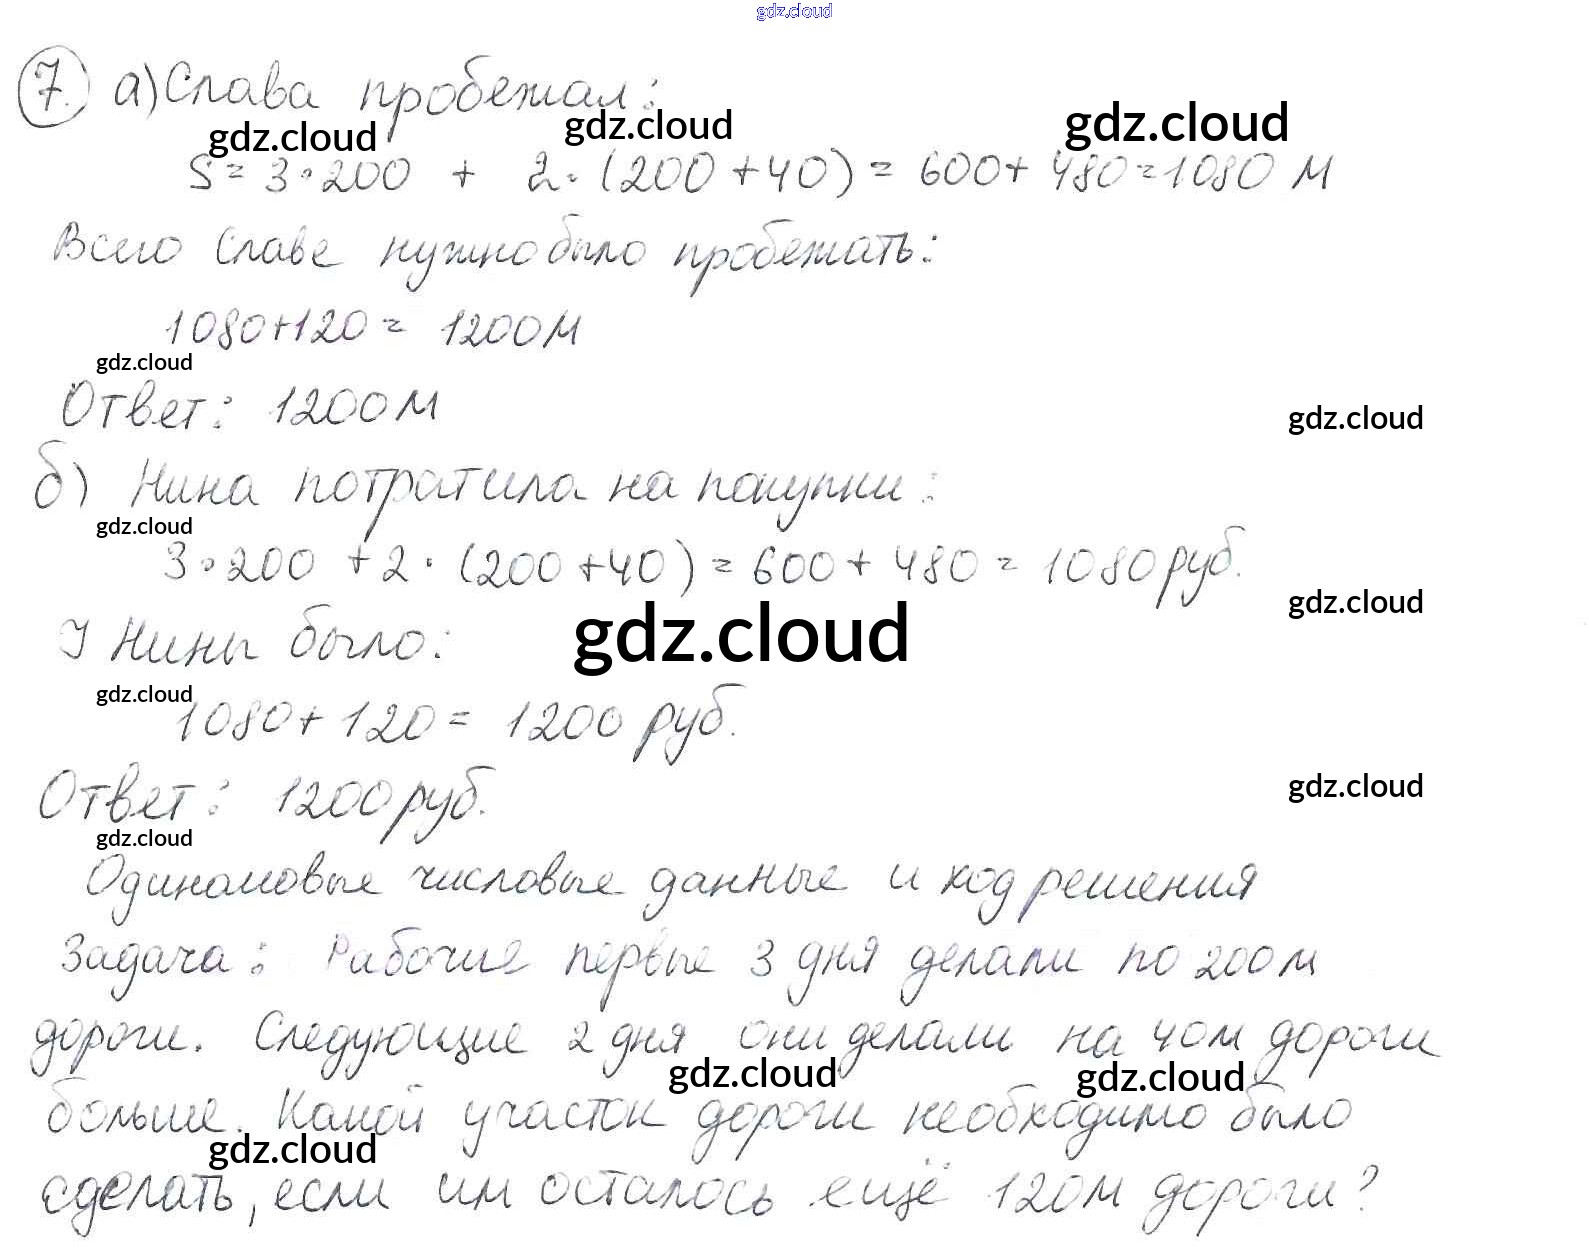 gdz.cloud
7. а) Слава пробежал:
gdz.cloud gdz.cloud gdz.cloud
S = 3·200 + 2·(200+40) = 600+480=1080 м
Всего Славе нужно было пробежать:
1080+120= 1200м
gdz.cloud
Ответ: 1200м
gdz.cloud
б) Нина потратила на покупки:
gdz.cloud
3·200 +2·(200+40)=600+480=1080руб.
gdz.cloud
У Нины было:
gdz.cloud
gdz.cloud
1080+120= 1200 руб.
Ответ: 1200руб.
gdz.cloud
gdz.cloud
Одинаковые числовые данные и ход решения
Задача: Рабочие первые 3 дня делали по 200м
дороги. Следующие 2 дня они делали на 40м дороги
gdz.cloud gdz.cloud
больше. Какой участок дороги необходимо было
gdz.cloud
сделать, если им осталось ещё 120м дороги?